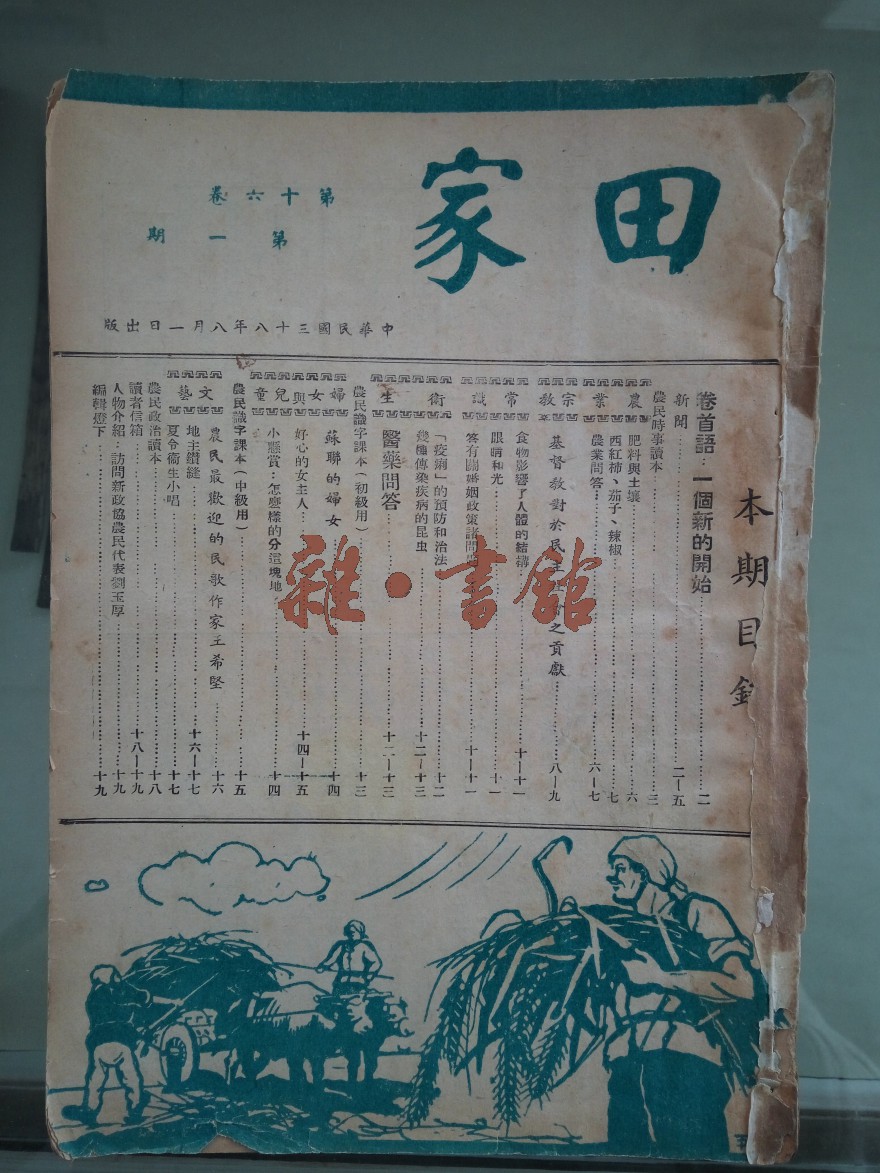 田家
第十六卷
第一期
中華民國三十八年八月一日出版
本期目
卷首語：一個新的開始……二
新聞……二—五
農民時事讀本……三
農業
肥料與土壤……六
西紅柿、茄子、辣椒……七
農業問答……六—七
宗教
基督教對於民主之貢獻……八—九
常識
食物影響了人體的結構……十—十一
眼睛和光……十一
答有關婚姻政策諸問……十—十一
衛生
「疫痢」的預防和治法……十二
幾種傳染疾病的昆虫……十二—十三
醫藥問答……十二—十三
農民識字課本（初級用）……十三
婦女與兒童
蘇聯的婦女……十四
好心的女主人……十四—十五
小懸賞：怎麼樣的分這塊地……十四
農民識字課本（中級用）……十五
文藝
農民最歡迎的民歌作家王希堅……十六
地主鑽縫……十六—十七
夏令衛生小唱……十七
農民政治讀本……十八
讀者信箱……十八—十九
人物介紹：訪問新政協農民代表劉玉厚……十九
編輯燈下……十九
雜·書館